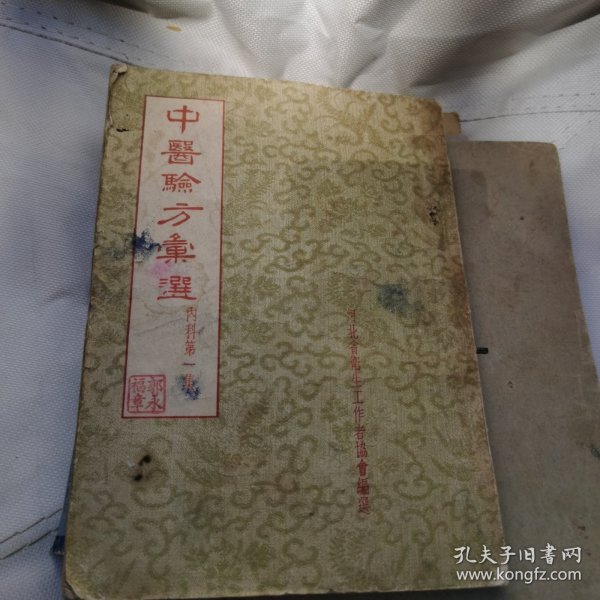 中醫驗方彙選
內科第一集
郭永
福章
河北省衛生工作者協會編選
孔夫子旧书网
www.kongfz.com